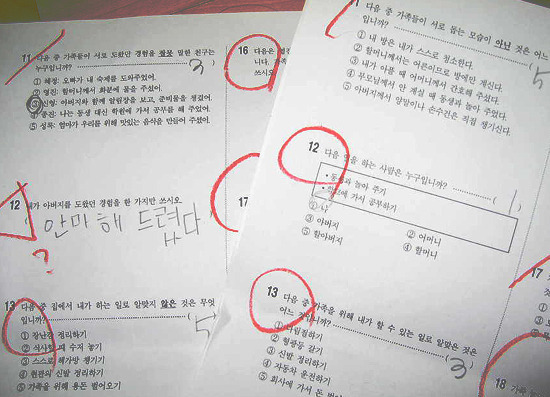 11 다음 중 가족들이 서로 도왔던 경험을 잘못 말한 친구는
누구입니까?( 3
① 혜정: 오빠가 내 숙제를 도와주었어.
② 영진: 할머니께서 화분에 물을 주셨어.
③ 신영: 아버지와 함께 알림장을 보고, 준비물을 챙겼어.
④ 종진: 나는 동생 대신 학원에 가서 공부를 해 주었어.
⑤ 성목: 엄마가 우리를 위해 맛있는 음식을 만들어 주셨어.
12 내가 아버지를 도왔던 경험을 한 가지만 쓰시오.
안마해 드렸다
?
13 다음 중 집에서 내가 하는 일로 알맞지 않은 것은 무엇
입니까?( 5
① 장난감 정리하기
② 식사할 때 수저 놓기
③ 스스로 책가방 챙기기
④ 현관의 신발 정리하기
⑤ 가족을 위해 용돈 벌어오기
16 다음은
니다.
쓰시오
17
다음 중 가족들이 서로 돕는 모습이 아닌 것은 어느
입니까?( 5
① 내 방은 내가 스스로 청소한다.
② 할머니께서는 어른이므로 방에만 계신다.
③ 내가 아플 때 어머니께서 간호해 주셨다.
④ 부모님께서 안 계실 때 동생과 놀아 주었다.
⑤ 아버지께서 양말이나 손수건은 직접 챙기신다.
12 다음 일을 하는 사람은 누구입니까?( )
• 동생과 놀아 주기
• 학교에 가서 공부하기
① 나
② 어머니
③ 아버지
④ 할머니
⑤ 할아버지
13 다음 중 가족을 위해 내가 할 수 있는 일로 알맞은 것은
어느 것입니까?( 3
① 다림질하기
② 형광등 갈기
③ 신발 정리하기
④ 자동차 운전하기
⑤ 회사에 가서 돈 벌
17
18 가족